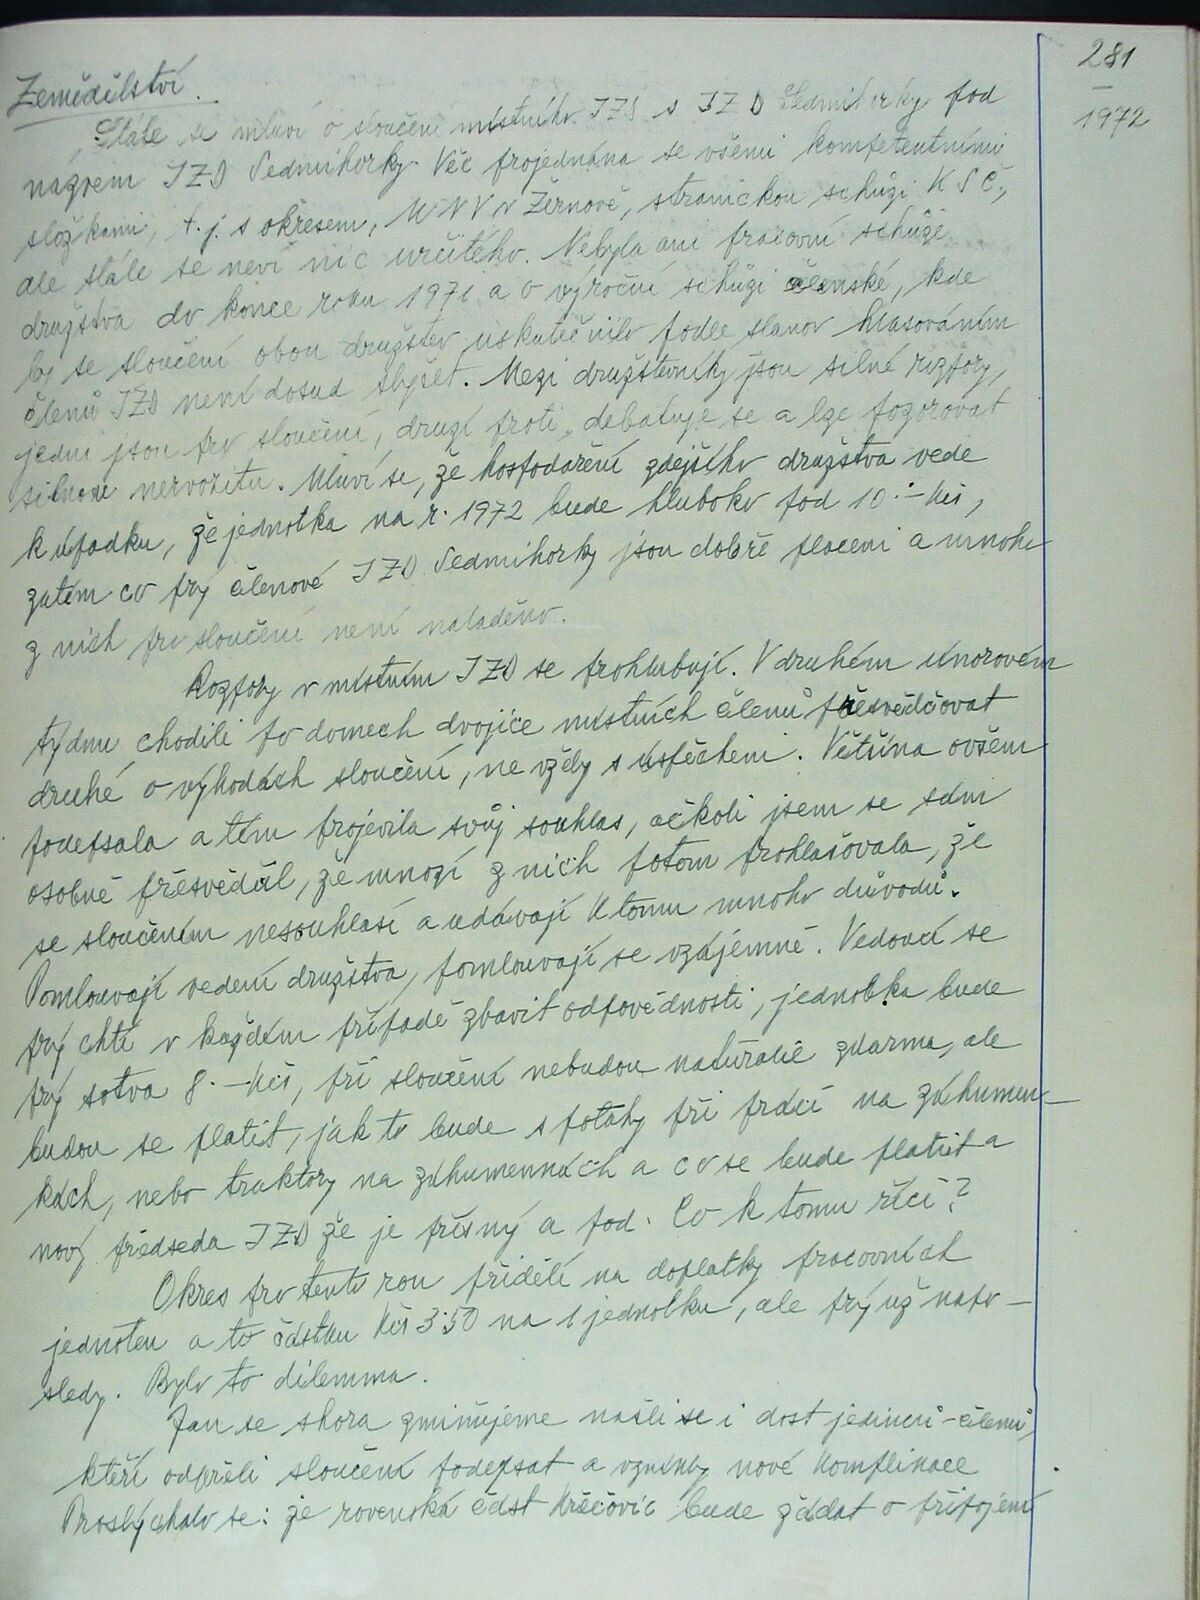 281
1972
Zemědělství.
Stále se mluví o sloučení místního JZD s JZD Sedmihorky pod
názvem JZD Sedmihorky. Věc projednána se všemi kompetentními
složkami, t.j. s okresem, MNV v Žernově, stranickou schůzi KSČ.,
ale stále se neví nic určitého. Nebyla ani pracovní schůze
družstva do konce roku 1971 a o výroční schůzi členské, kde
by se sloučení obou družstev uskutečnilo podle stanov hlasováním
členů JZD není dosud slyšet. Mezi družstevníky jsou silné rozpory,
jedni jsou pro sloučení, druzí proti, debatuje se a lze pozorovat
silnou nervozitu. Mluví se, že hospodaření zdejšího družstva vede
k úpadku, že jednotka na r. 1972 bude hluboko pod 10.- Kčs,
zatím co prý členové JZD Sedmihorky jsou dobře placeni a mnoho
z nich pro sloučení není naladěno.
Rozpory v místním JZD se prohlubují. V druhém únorovém
týdnu chodili po domech dvojice místních členů přesvědčovat
druhé o výhodách sloučení, ne vždy s úspěchem. Většina ovšem
podepsala a tím projevila svůj souhlas, ačkoli jsem se sám
osobně přesvědčil, že mnozí z nich potom prohlašovala, že
se sloučením nesouhlasí a udávají k tomu mnoho důvodů.
Pomlouvají vedení družstva, pomlouvají se vzájemně. Vedoucí se
prý chtí v každém případě zbavit odpovědnosti, jednotka bude
prý sotva 8.- Kčs, při sloučení nebudou naturálie zdarma, ale
budou se platit, jak to bude s potahy při práci na záhumen-
kách, nebo traktory na záhumenkách a co se bude platit a
nový předseda JZD že je přísný a pod. Co k tomu říci?
Okres pro tento rok přidělí na doplatky pracovních
jednotek a to částku Kčs 3.50 na 1 jednotku, ale prý už napo-
sledy. Bylo to dilemma.
Jak se shora zmiňujeme našli se i dost jedinců-členů,
kteří odepřeli sloučení podepsat a vznikly nové komplikace
Proslýchalo se: že rovenská část Křečovic bude žádat o připojení